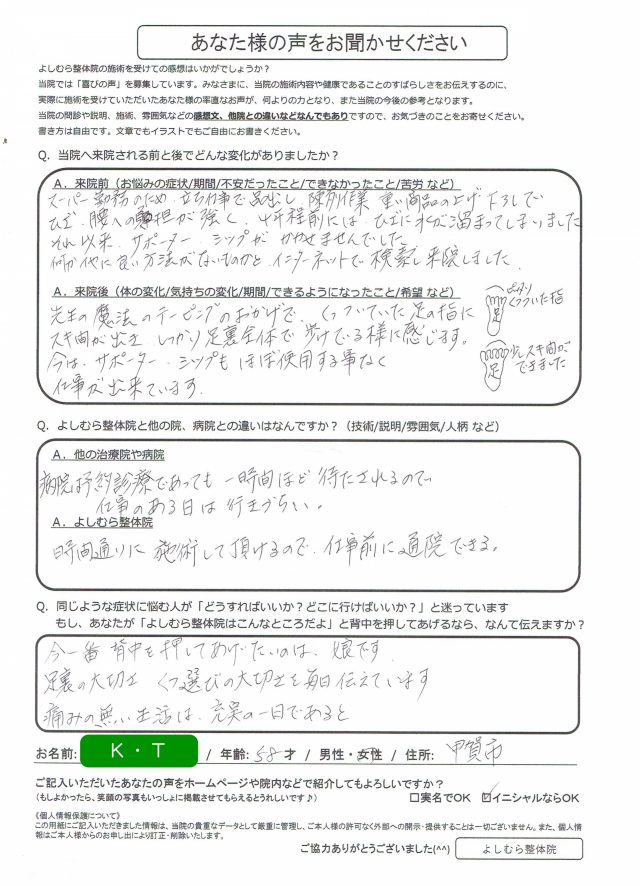 あなた様の声をお聞かせください
よしむら整体院の施術を受けての感想はいかがでしょうか？
当院では「喜びの声」を募集しています。みなさまに、当院の施術内容や健康であることのすばらしさをお伝えするのに、
実際に施術を受けていただいたあなた様の率直なお声が、何よりの力となり、また当院の今後の参考となります。
当院の問診や説明、施術、雰囲気などの感想文、他院との違いなどなんでもありですので、お気づきのことをお寄せください。
書き方は自由です。文章でもイラストでもご自由にお書きください。
Q．当院へ来院される前と後でどんな変化がありましたか？
A．来院前（お悩みの症状/期間/不安だったこと/できなかったこと/苦労 など）
スーパー勤務のため、立ち仕事で品出し、陳列作業、重い商品の上げ下ろしで
ひざ、腰への負担が強く、4年程前には、ひざに水が溜まってしまいました
それ以来、サポーター、シップが、かかせませんでした。
何か他に良い方法がないものかと、インターネットで検索し来院しました。
A．来院後（体の変化/気持ちの変化/期間/できるようになったこと/希望 など）
先生の魔法のテーピングのおかげで、くっついていた足の指に
スキ間が出き、しっかり足裏全体で歩けている様に感じます。
今は、サポーター、シップも ほぼ使用する事なく
仕事が出来ています。
ぴったり
くっついた指
足
少しスキ間が
できました
足
Q．よしむら整体院と他の院、病院との違いはなんですか？（技術/説明/雰囲気/人柄 など）
A．他の治療院や病院
病院は予約診療であっても 一時間ほど待たされるので
仕事のある日は 行きづらい。
A．よしむら整体院
時間通りに 施術して頂けるので、仕事前に通院できる。
Q．同じような症状に悩む人が「どうすればいいか？どこに行けばいいか？」と迷っています
もし、あなたが「よしむら整体院はこんなところだよ」と背中を押してあげるなら、なんて伝えますか？
今一番 背中を押してあげたいのは、娘です
足裏の大切さ くつ選びの大切さを毎日伝えています
痛みの無い生活は、充実の一日であると
お名前: K・T / 年齢: 58 才 / 男性・女性 / 住所: 甲賀市
ご記入いただいたあなたの声をホームページや院内などで紹介してもよろしいですか？
（もしよかったら、笑顔の写真もいっしょに掲載させてもらえるとうれしいです♪） □実名でOK ☑イニシャルならOK
《個人情報保護について》
この用紙にご記入いただきました情報は、当院の貴重なデータとして厳重に管理し、ご本人様の許可なく外部への開示・提供することは一切ございません。また、個人情
報はご本人様からのお申し出により訂正・削除いたします。
ご協力ありがとうございました(^^) よしむら整体院